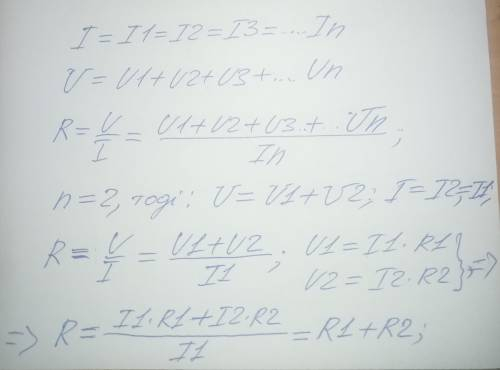 I = I1 = I2 = I3 = ... In
U = U1 + U2 + U3 + ... Un
R = U/I = (U1 + U2 + U3 + ... Un)/In ;
n = 2, тоді: U = U1 + U2; I = I2 = I1;
R = U/I = (U1 + U2)/I1 ; U1 = I1 · R1
U2 = I2 · R2 } =>
=> R = (I1 · R1 + I2 · R2)/I1 = R1 + R2;